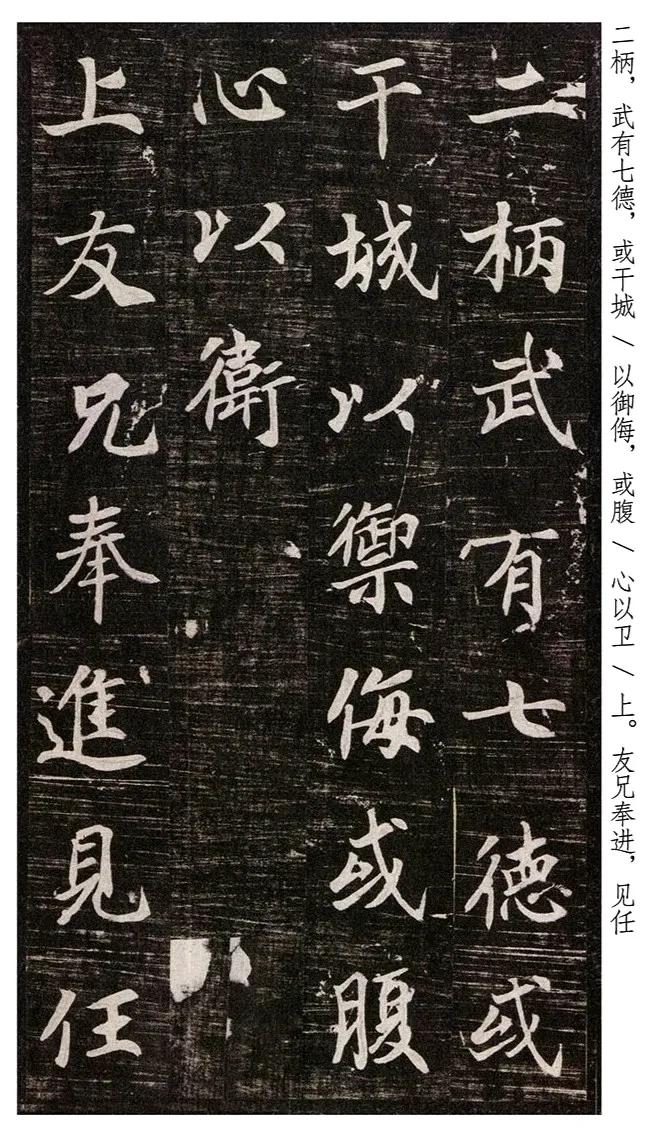 二柄，武有七德，或干城／以御侮，或腹／心以卫／上。友兄奉进，见任
二柄武有七德或
干城以禦侮或腹
心以衛
上友兄奉進見任